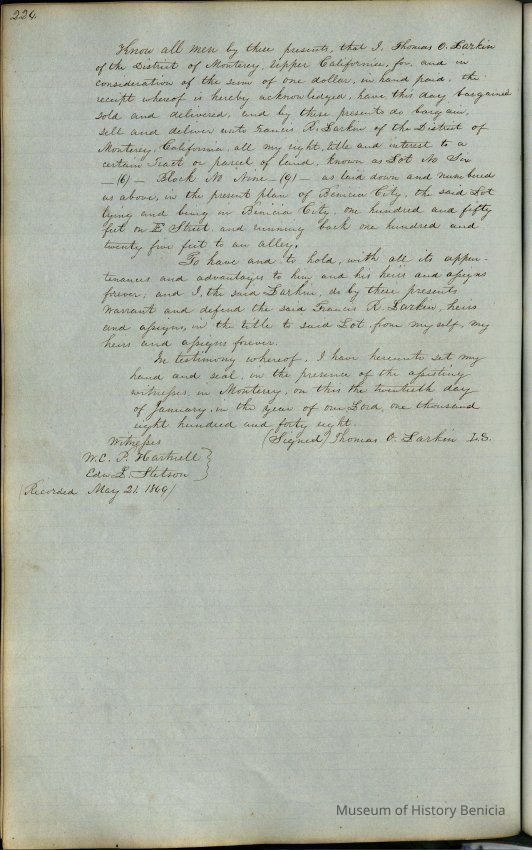 224.
Know all men by these presents, that I, Thomas O. Larkin
of the District of Monterey, Upper California, for, and in
consideration of the sum of one dollar, in hand paid, the
receipt whereof is hereby acknowledged, have this day bargained
sold and delivered, and by these presents do bargain,
sell and deliver unto Francis R. Larkin of the District of
Monterey, California, all my right, title and interest to a
certain Tract or parcel of land, known as Lot No Six
—(6)— Block No Nine—(9)— as laid down and numbered
as above, in the present plan of Benicia City, the said Lot
lying and being in Benicia City, one hundred and fifty
feet on E Street, and running back one hundred and
twenty five feet to an alley.
To have and to hold, with all its appur-
tenances and advantages to him and his heirs and assigns
forever, and I, the said Larkin, do by these presents
warrant and defend the said Francis R. Larkin, heirs
and assigns, in the title to said Lot, from myself, my
heirs and assigns forever.
In testimony whereof, I have hereunto set my
hand and seal, in the presence of the
witnesses, in Monterey, on this the twentieth day
of January, in the year of our Lord, one thousand
eight hundred and forty eight.
Witnesses (Signed) Thomas O. Larkin L.S.
W. E. P. Hartnell
Edw L. Stetson
(Recorded May 21. 1860)
Museum of History Benicia